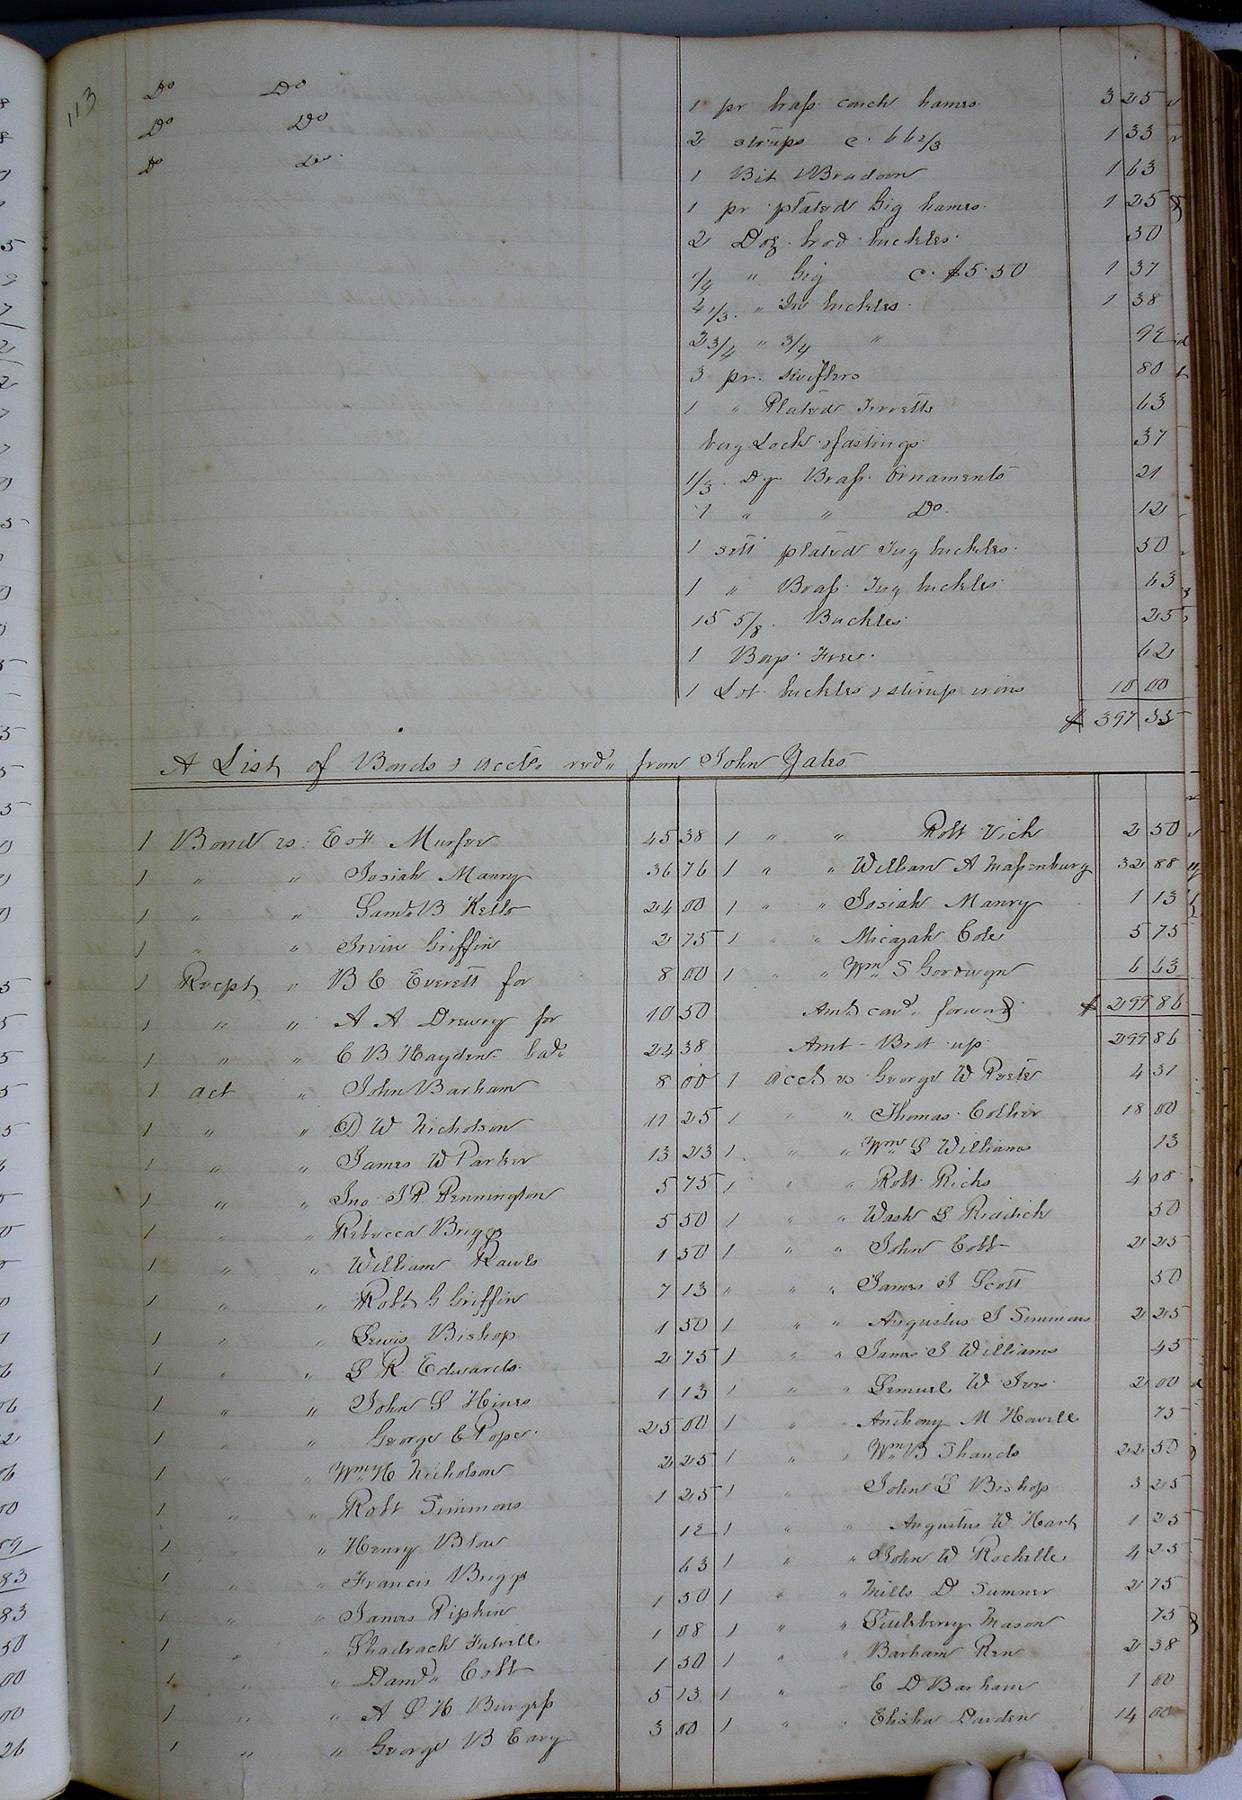 113
Do Do
Do Do
Do Do
1 pr brass coach hames 3 25
2 straps c. 66 2/3 1 33
1 Bit & Bradoon 1 63
1 pr plated Gig hames 1 25
2 Doz. buckles 50
1/4 " Gig c. $5.50 1 37
4 1/3 " In buckles 1 38
2 3/4 " 3/4 "
3 pr. swiflers 80
1 " Plated Terretts 63
Lock & fastings 37
1/3 Dz Brass Ornaments 21
1 " " Do 12
1 sett plated Tug buckles 50
1 " Brass Tug buckles 63
15 5/8 Buckles 25
1 62
1 Lot buckles & stirup irons 10 00
$ 397 35
A List of Bonds & accts recd from John Gates
1 Bond vs. E & H Murfee 45 38
1 " " Josiah Manry 36 76
1 " " Saml B Kello 24 00
1 " " Irvin Griffin 2 75
1 Recpt " B E Everett for 8 00
1 " " A A Drewry for 10 50
1 " " C B Hayden 24 38
1 act " John Barham 8 00
1 " " D W Nicholson 11 25
1 " " James W Parker 13 23
1 " " Jno J R Pennington 5 75
1 " " Rebecca Briggs 5 50
1 " " William Rawls 1 50
1 " " Robt G Griffin 7 13
1 " " Lewis Bishop 1 50
1 " " L R Edwards 2 75
1 " " John S Hines 1 13
1 " " George E Pope 25 00
1 " " Wm H Nicholson 2 25
1 " " Robt Simmons 1 25
1 " " Henry Blow
1 " " Francis Briggs 63
1 " " James Pipkin 1 50
1 " " Shadrack Futrell 1 08
1 " " Danl Cobb 1 50
1 " " A S H Burgess 5 13
1 " " George B Cary 3 00
1 " " Robt Vick 2 50
1 " " William A Massenburg 32 88
1 " " Josiah Manry 1 13
1 " " Micajah Cole 5 75
1 " " Wm S Goodwyn 6 63
Amt card forward $ 299 86
Amt Brot up 299 86
1 acct vs George W Peete 4 31
1 " " Thomas Collier 18 00
1 " " Wm S Williams 13
1 " " Robt Ricks 4 08
1 " " Wash S Riddick 50
1 " " John Cobb 2 25
" " " James J Scott 50
1 " " Augustus J Simmons 2 25
1 " " James J Williams 45
1 " " Lemuel W Ives 2 00
1 " Anthony M Howell 75
1 " " Wm B Shands 22 50
1 " John S Bishop 3 25
1 " " Augustus W Hart 1 25
1 " " John W Rochelle 4 25
1 " " Mills D Sumner 2 75
1 " " Mason 75
1 " " Barham Ren 2 38
1 " " E D Barham 1 00
1 " " Elisha Darden 14 00